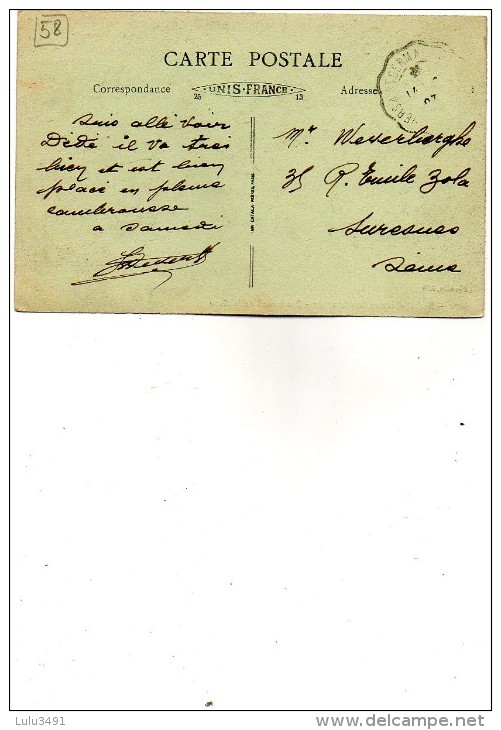 58
CARTE POSTALE
Correspondance
UNIS-FRANCE
25 13
Adresse
suis allé voir
Dédé il va très
bien et est bien
placé en pleine
cambrousse
a samedi
Mr
35 R. Emile Zola
Suresnes
Seine
Lulu3491
www.delcampe.net